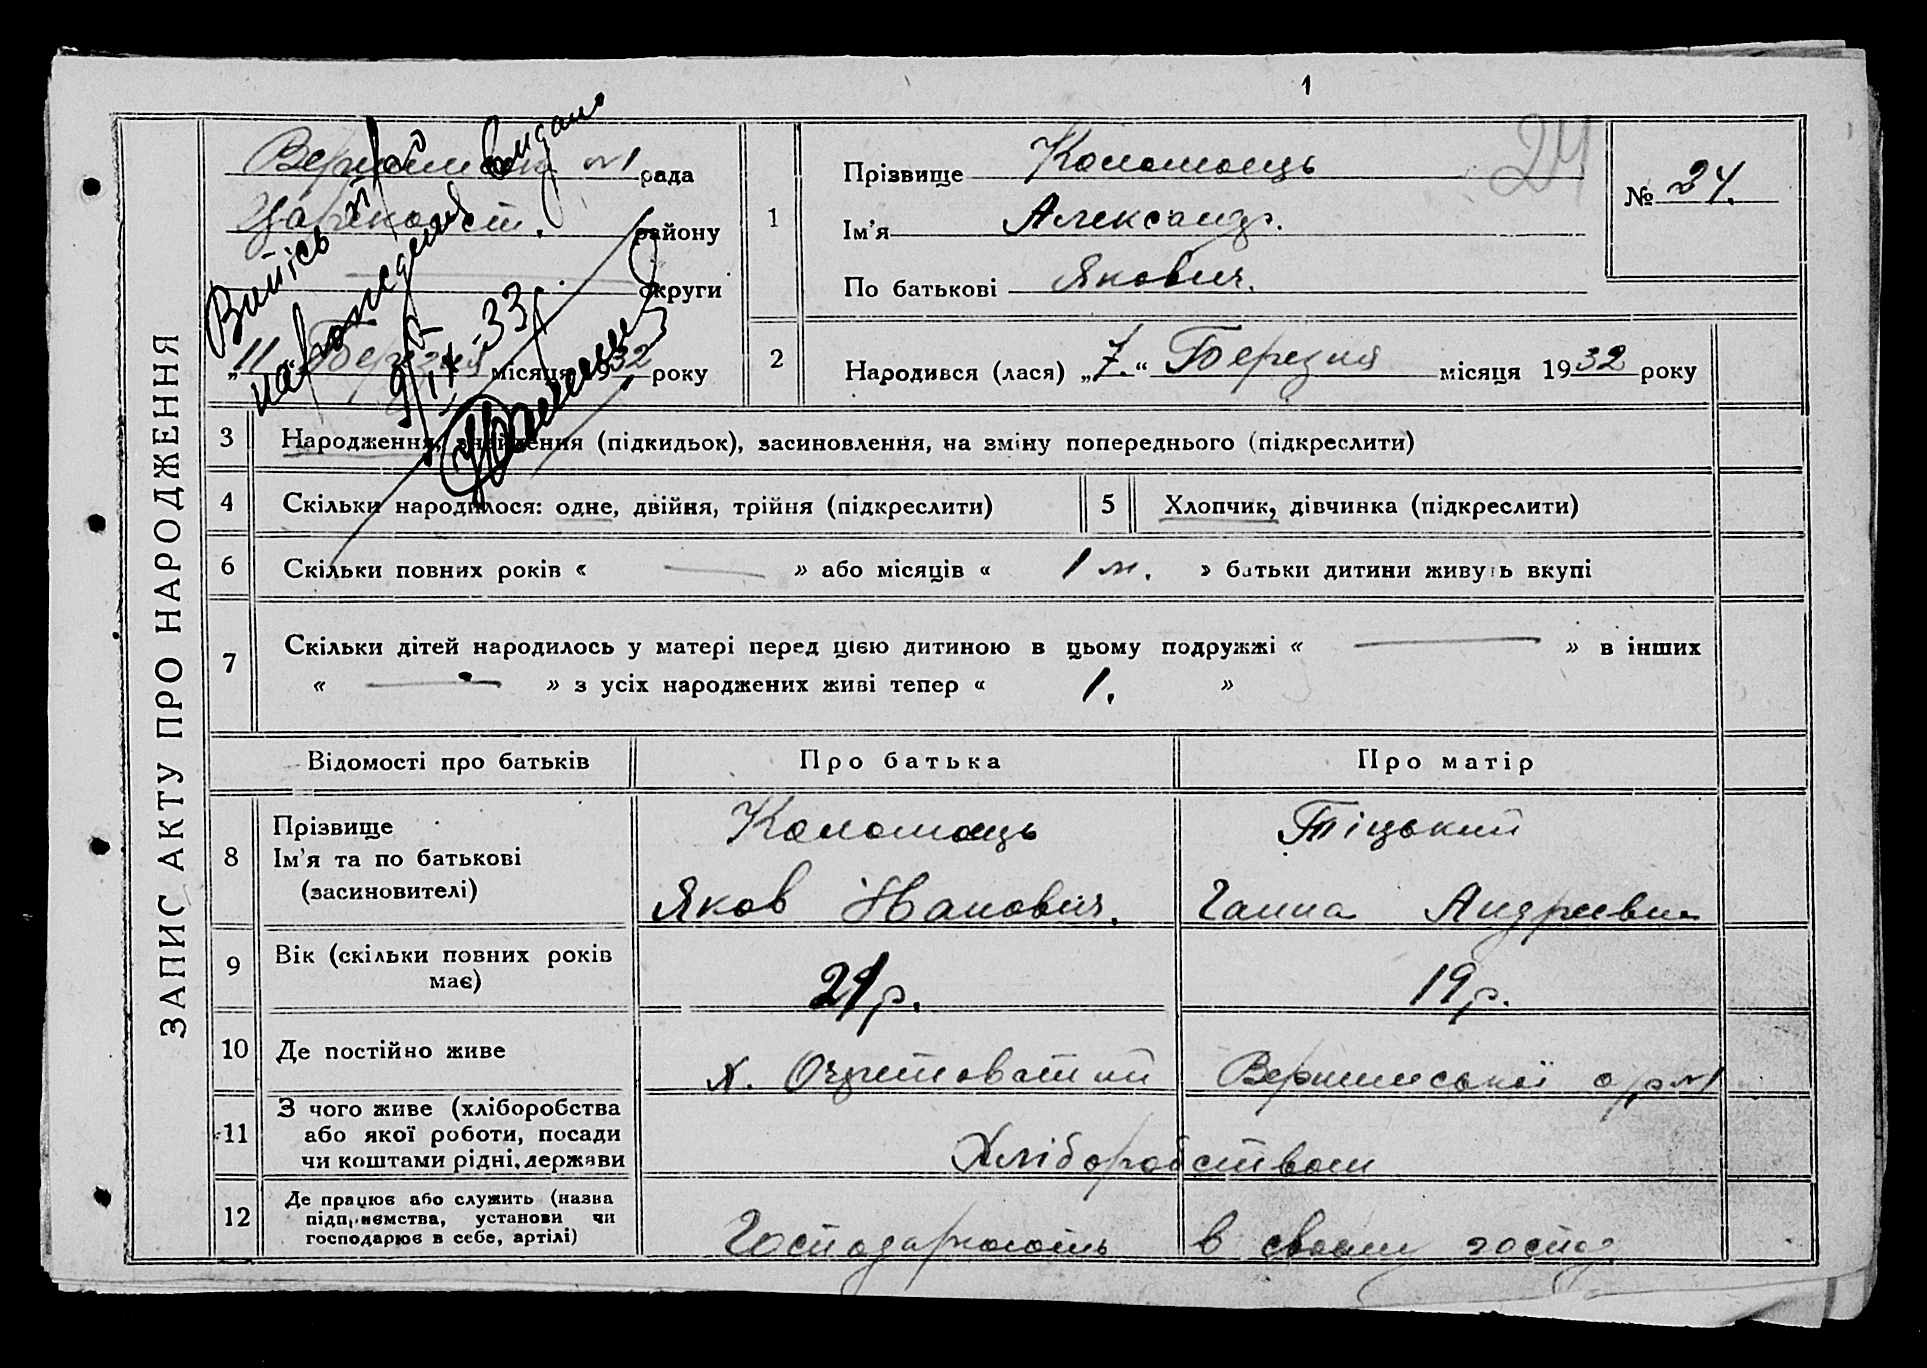 1
ЗАПИС АКТУ ПРО НАРОДЖЕННЯ
№1 рада
району
округи
„11“ Березня місяця 1932 року
Випись
видано
9/IX-33 р.
1 Прізвище Коломоєць
Ім'я Александр.
По батькові Якович.
24
№ 24.
2 Народився (лася) „7.“ Березня місяця 1932 року
3 Народження, знайдення (підкидьок), засиновлення, на зміну попереднього (підкреслити)
4 Скільки народилося: одне, двійня, трійня (підкреслити) 5 Хлопчик, дівчинка (підкреслити)
6 Скільки повних років « — » або місяців « 1 м. » батьки дитини живуть вкупі
7 Скільки дітей народилось у матері перед цією дитиною в цьому подружжі « — » в інших
« — » з усіх народжених живі тепер « 1. »
Відомості про батьків Про батька Про матір
8 Прізвище Коломоєць Тіцький
Ім'я та по батькові
(засиновителі) Яков Іванович. Ганна Андреевна
9 Вік (скільки повних років
має) 21 р. 19 р.
10 Де постійно живе х. Очеретоватий №1
11 З чого живе (хліборобства
або якої роботи, посади
чи коштами рідні, держави Хліборобством
12 Де працює або служить (назва
підприємства, установи чи
господарює в себе, артілі) Господарюють в своему господ